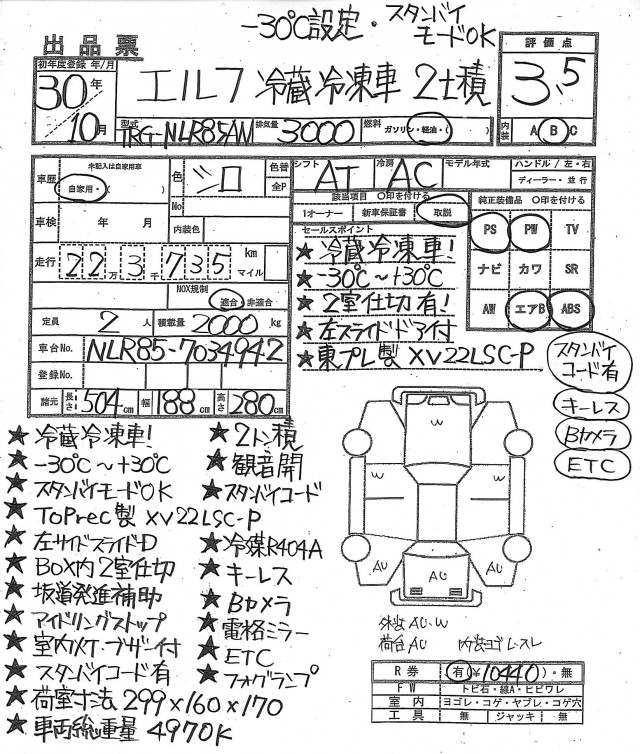 -30℃設定・スタンバイモードOK
出品票
初年度登録 年/月
30年
10月
エルフ 冷蔵冷凍車 2t積
評価点
3.5
内装 A B C
型式 TRG-NLR85AN
排気量 3000
燃料 ガソリン・軽油・( )
車歴
未記入は自家用車
自家用・( )
色 シロ
No
色替
全P
車検 年 月
内装色
走行 22万3千735 km マイル
NOX規制
適合・非適合
定員 2人
積載量 2000kg
車台No. NLR85-7034942
登録No.
諸元 長さ504cm 幅188cm 高さ280cm
シフト AT
冷房 AC
モデル年式
ハンドル/左・右
ディーラー・並行
該当項目 〇印を付ける
1オーナー 新車保証書 取説
純正装備品 〇印を付ける
PS PW TV
ナビ カワ SR
AW エアB ABS
セールスポイント
★冷蔵冷凍車!
★-30℃~+30℃
★2室仕切有!
★左スライドドア付
★東プレ製 XV22LSC-P
スタンバイコード有
キーレス
Bカメラ
ETC
★冷蔵冷凍車!
★-30℃~+30℃
★スタンバイモードOK
★TOPrec製 XV22LSC-P
★左サイドスライドD
★BOX内2室仕切
★坂道発進補助
★アイドリングストップ
★室内灯・ブザー付
★スタンバイコード有
★荷室寸法 299×160×170
★車両総重量 4970K
★2トン積
★観音開
★スタンバイコード
★冷媒R404A
★キーレス
★Bカメラ
★電格ミラー
★ETC
★フォグランプ
W
W
W
AU
AU
AU
外装AU・W
荷台AU 内装ヨゴレ・スレ
R券 有(¥10440)・無
FW トビ石・線A・ヒビワレ
室内 ヨゴレ・コゲ・ヤブレ・コゲ穴
工具 無 ジャッキ 無